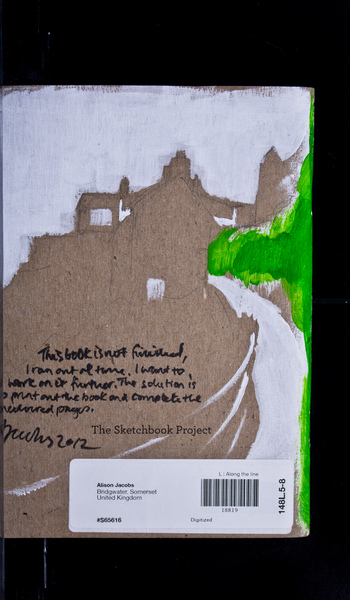 This book is not finished,
I ran out of time. I want to,
work on it further. The solution is
print out the book and complete the
pages.
2012
The Sketchbook Project
L : Along the line
Alison Jacobs
Bridgwater, Somerset
United Kingdom
18819
#S65616
Digitized
148L.5-8